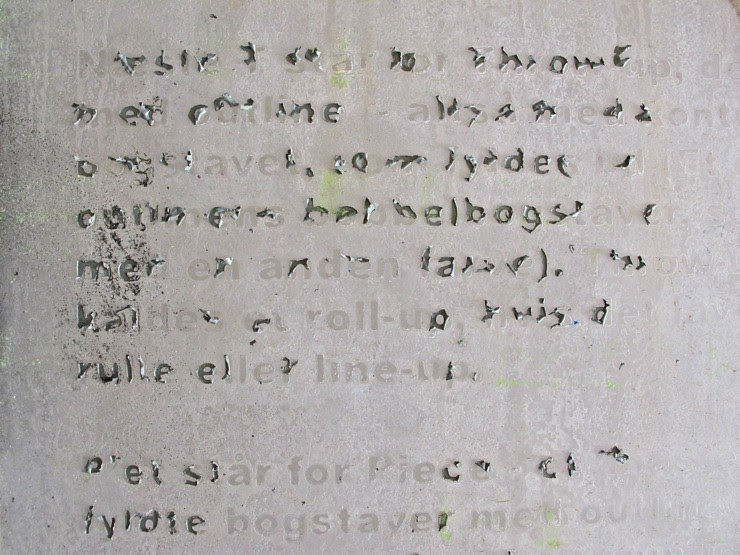 Næste T står for Throw-up, de
med outline - altså med kontu
bogstaver, som fyldes
outlinens bobbelbogstaver,
med en anden farve). Throw-
kaldes et roll-up, hvis det lav
rulle eller line-up.
P'et står for Piece - et
fyldte bogstaver med outlin